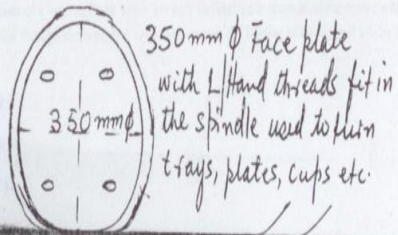 350mm φ Face plate
with L/Hand threads fit in
the spindle used to turn
trays, plates, cups etc.
350mmφ